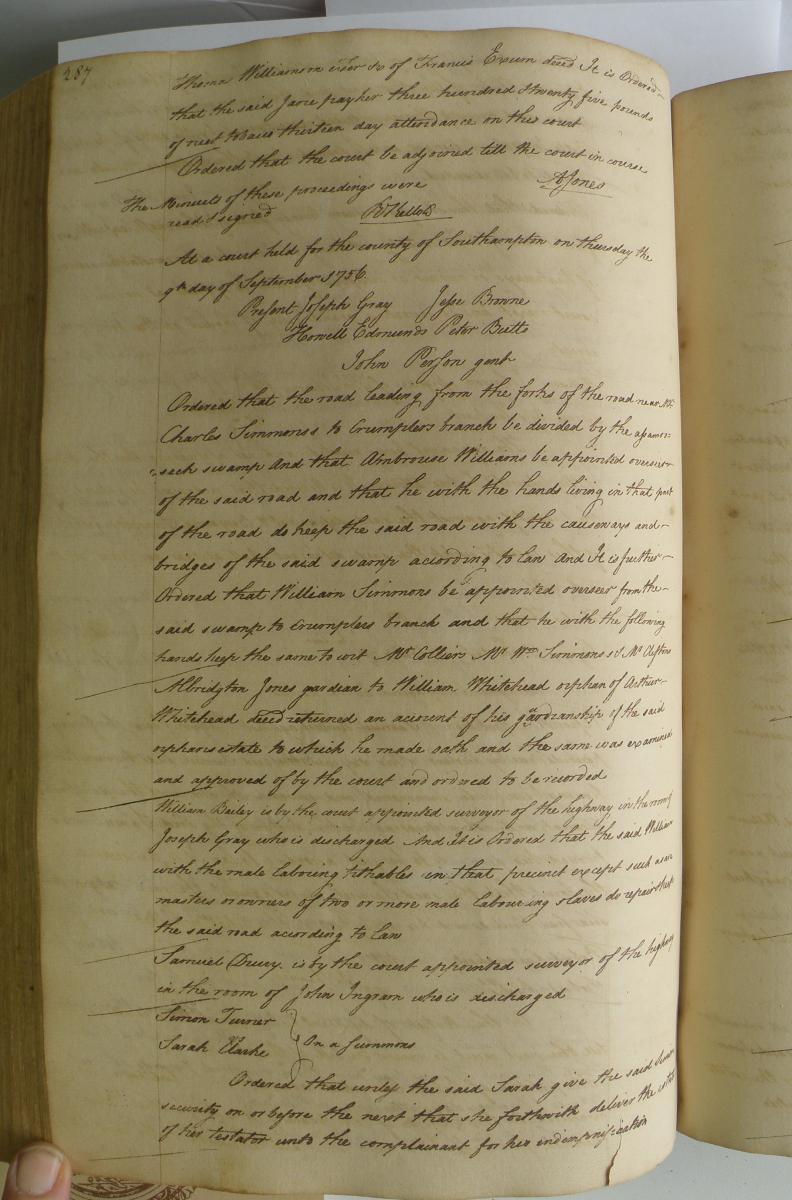 287
Thomas Williamson exer &c of Francis Exum decd It is Ordered
that the said Jane pay her three hundred &twenty five pounds
of neet tobacco thirteen day attendance on this court
Ordered that the court be adjoined till the court in course
The Minuets of these proceedings were AJones
read &signed RKello
At a court held for the county of Southampton on thursday the
9th day of September 1756.
Present Joseph Gray Jesse Browne
Howell Edmunds Peter Butts
John Person gent
Ordered that the road leading from the forks of the road near Mr
Charles Simmonss to Crumplers branch be divided by the assamoo=
=seck swamp And that Ambrouse Williams be appointed overseer
of the said road and that he with the hands living in that part
of the road do keep the said road with the causeways and
bridges of the said swamp according to Law And It is further
Ordered that William Simmons be appointed overseer from the
said swamp to Crumplers branch and that he with the following
hands keep the same to wit Mr Colliers Mr Wm Simmons
Albridgton Jones gardian to William Whitehead orphan of Arthur
Whitehead decd returned an account of his gardianship of the said
orphans estate to which he made oath and the same was examined
and approved of by the court and ordered to be recorded
William Bailey is by the court appointed surveyor of the highway in the room of
Joseph Gray who is discharged And It is Ordered that the said William
with the male labouring tithables in that precinct except such as are
masters or owners of two or more male labouring slaves do repair
the said road according to Law
Samuel Drury is by the court appointed surveyor of the highway
in the room of John Ingram who is discharged
Simon Turner
Sarah Clarke } On a Summons
Ordered that unless the said Sarah give the said Simon
security on or before the next that she forthwith deliver the
of her testator unto the complainant for his indempnification